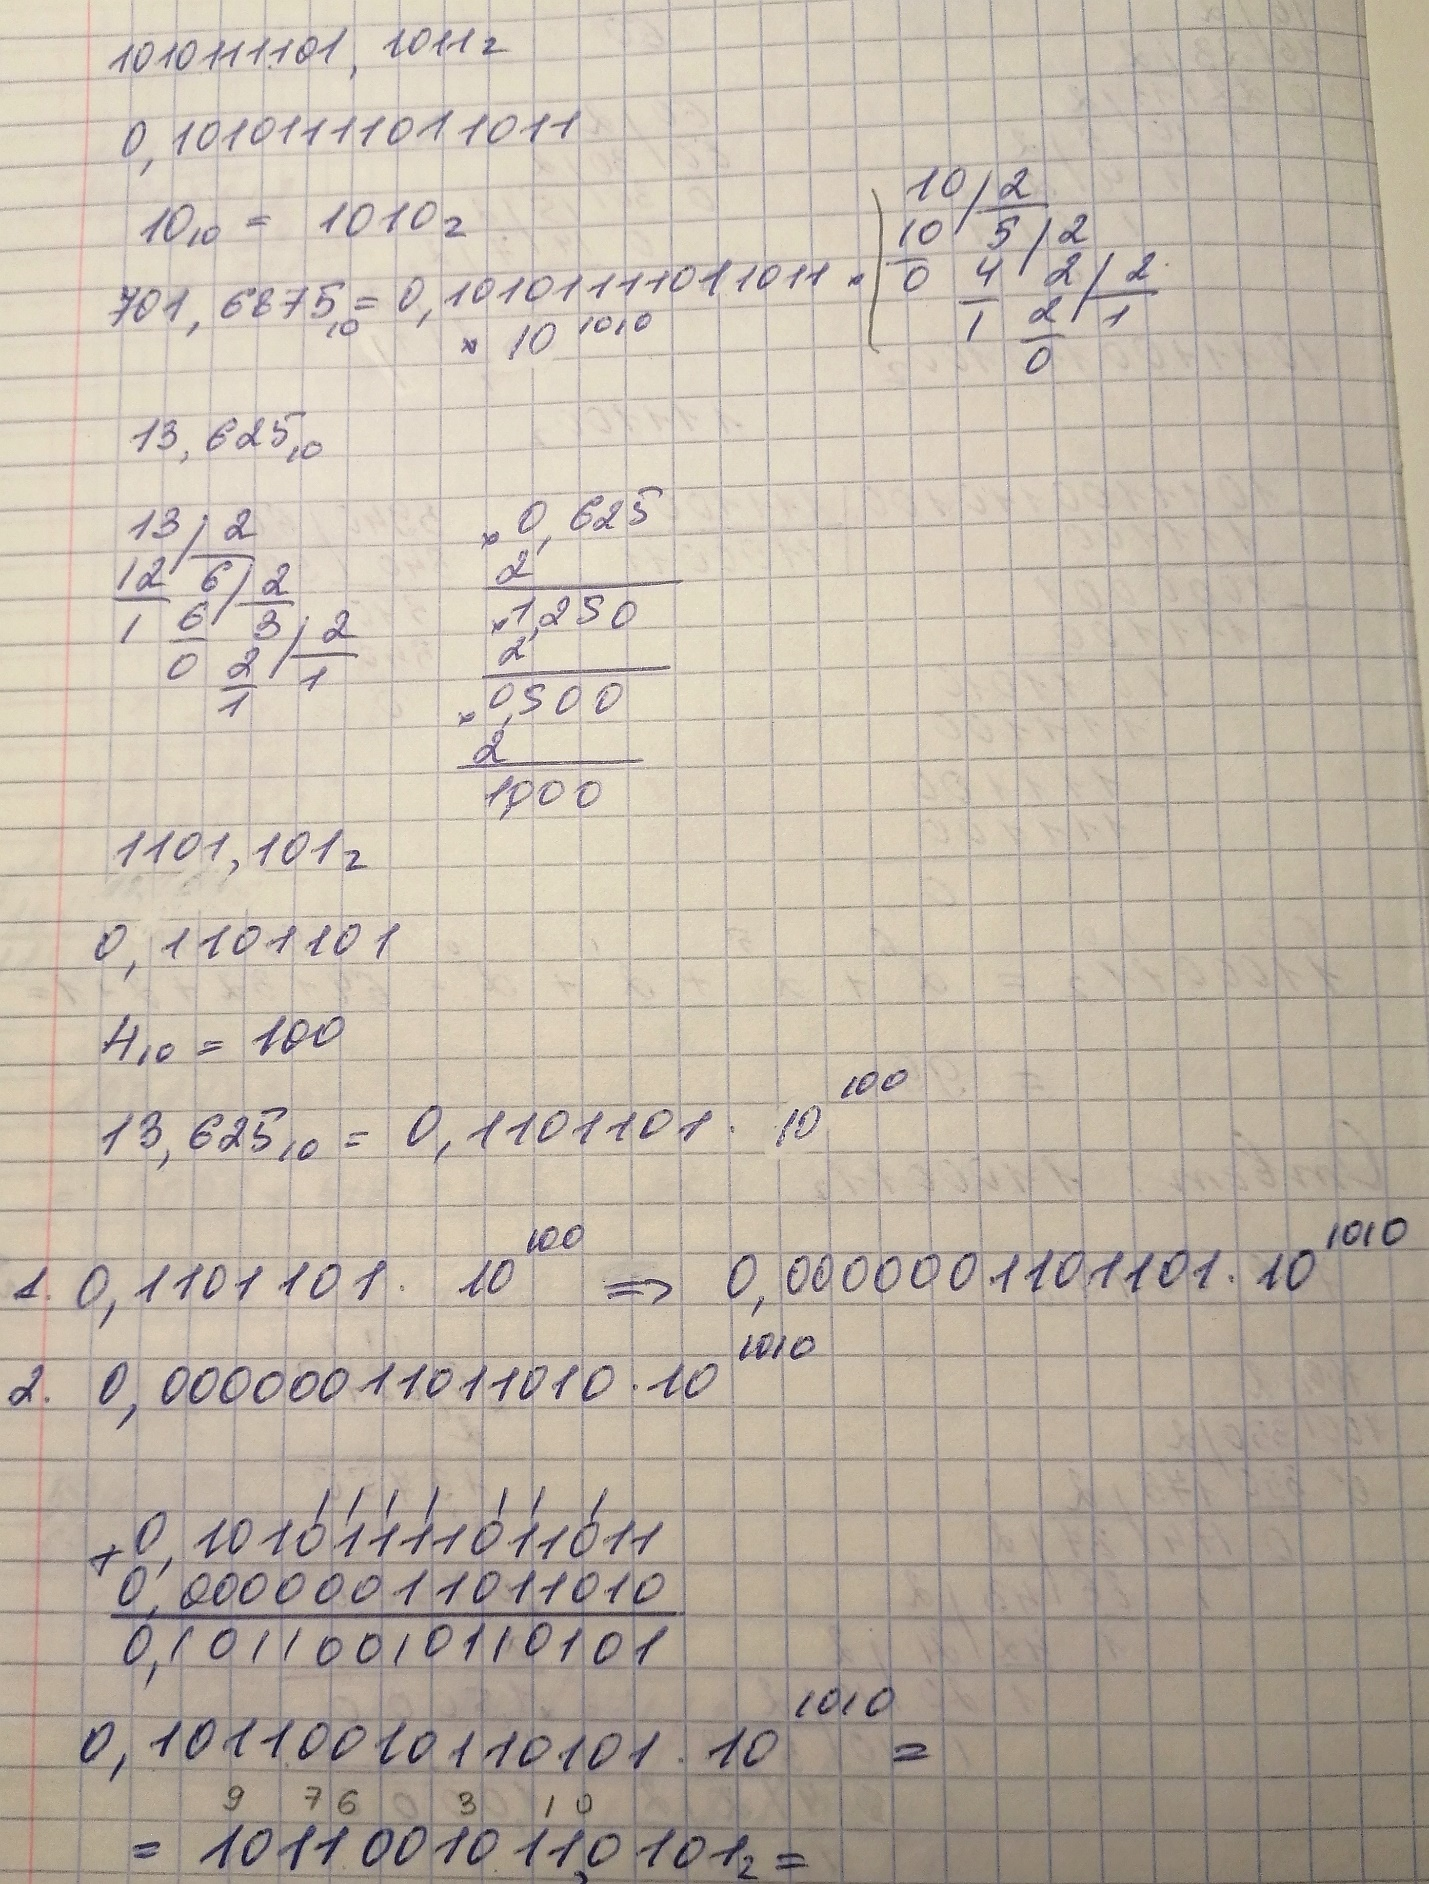 101011 1101, 1011₂
0,10101111011011
10₁₀ = 1010₂
10 / 2
10 5 / 2
0 4 2 / 2
1 2 1
0
701,6875₁₀ = 0,10101111011011 ·
× 10¹⁰¹⁰
13,625₁₀
13 / 2
12 6 / 2
1 6 3 / 2
0 2 1
1
× 0,625
2
× 1,250
2
× 0,500
2
1,000
1101,101₂
0,1101101
4₁₀ = 100
13,625₁₀ = 0,1101101 · 10¹⁰⁰
1. 0,1101101 · 10¹⁰⁰ => 0,0000001101101 · 10¹⁰¹⁰
2. 0,00000011011010 · 10¹⁰¹⁰
1 1 1 1 1 1 1
+ 0,10101111011011
0,00000011011010
0,10110010110101
0,10110010110101 · 10¹⁰¹⁰ =
9 7 6 0 3 1 0
= 1011001011,0101₂ =